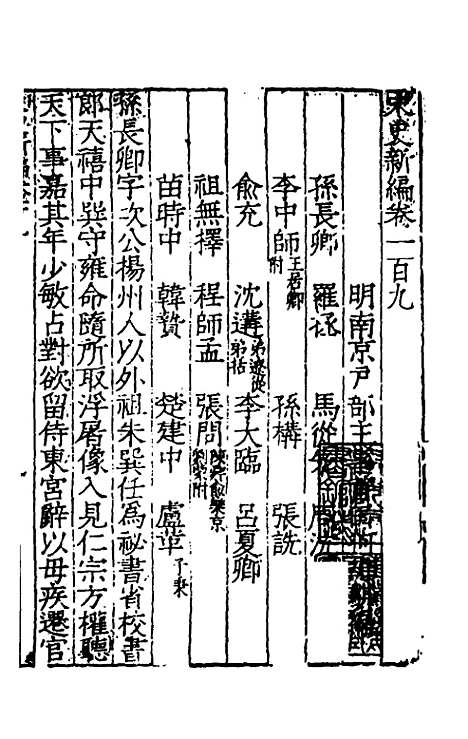 宋史新編卷一百九
明南京戶部主
孫長卿 羅拯 馬從先
李中師王居卿附 孫構 張詵
俞充 沈遘弟遼從弟括 李大臨 呂夏卿
祖無擇 程師孟 張問
苗時中 韓贄 楚建中 盧革子秉
孫長卿字次公楊州人以外祖朱巽任為祕書省校書
郎天禧中巽守雍命隨所取浮屠像入見仁宗方權聽
天下事嘉其年少敏占對欲留侍東宮辭以母疾遷官